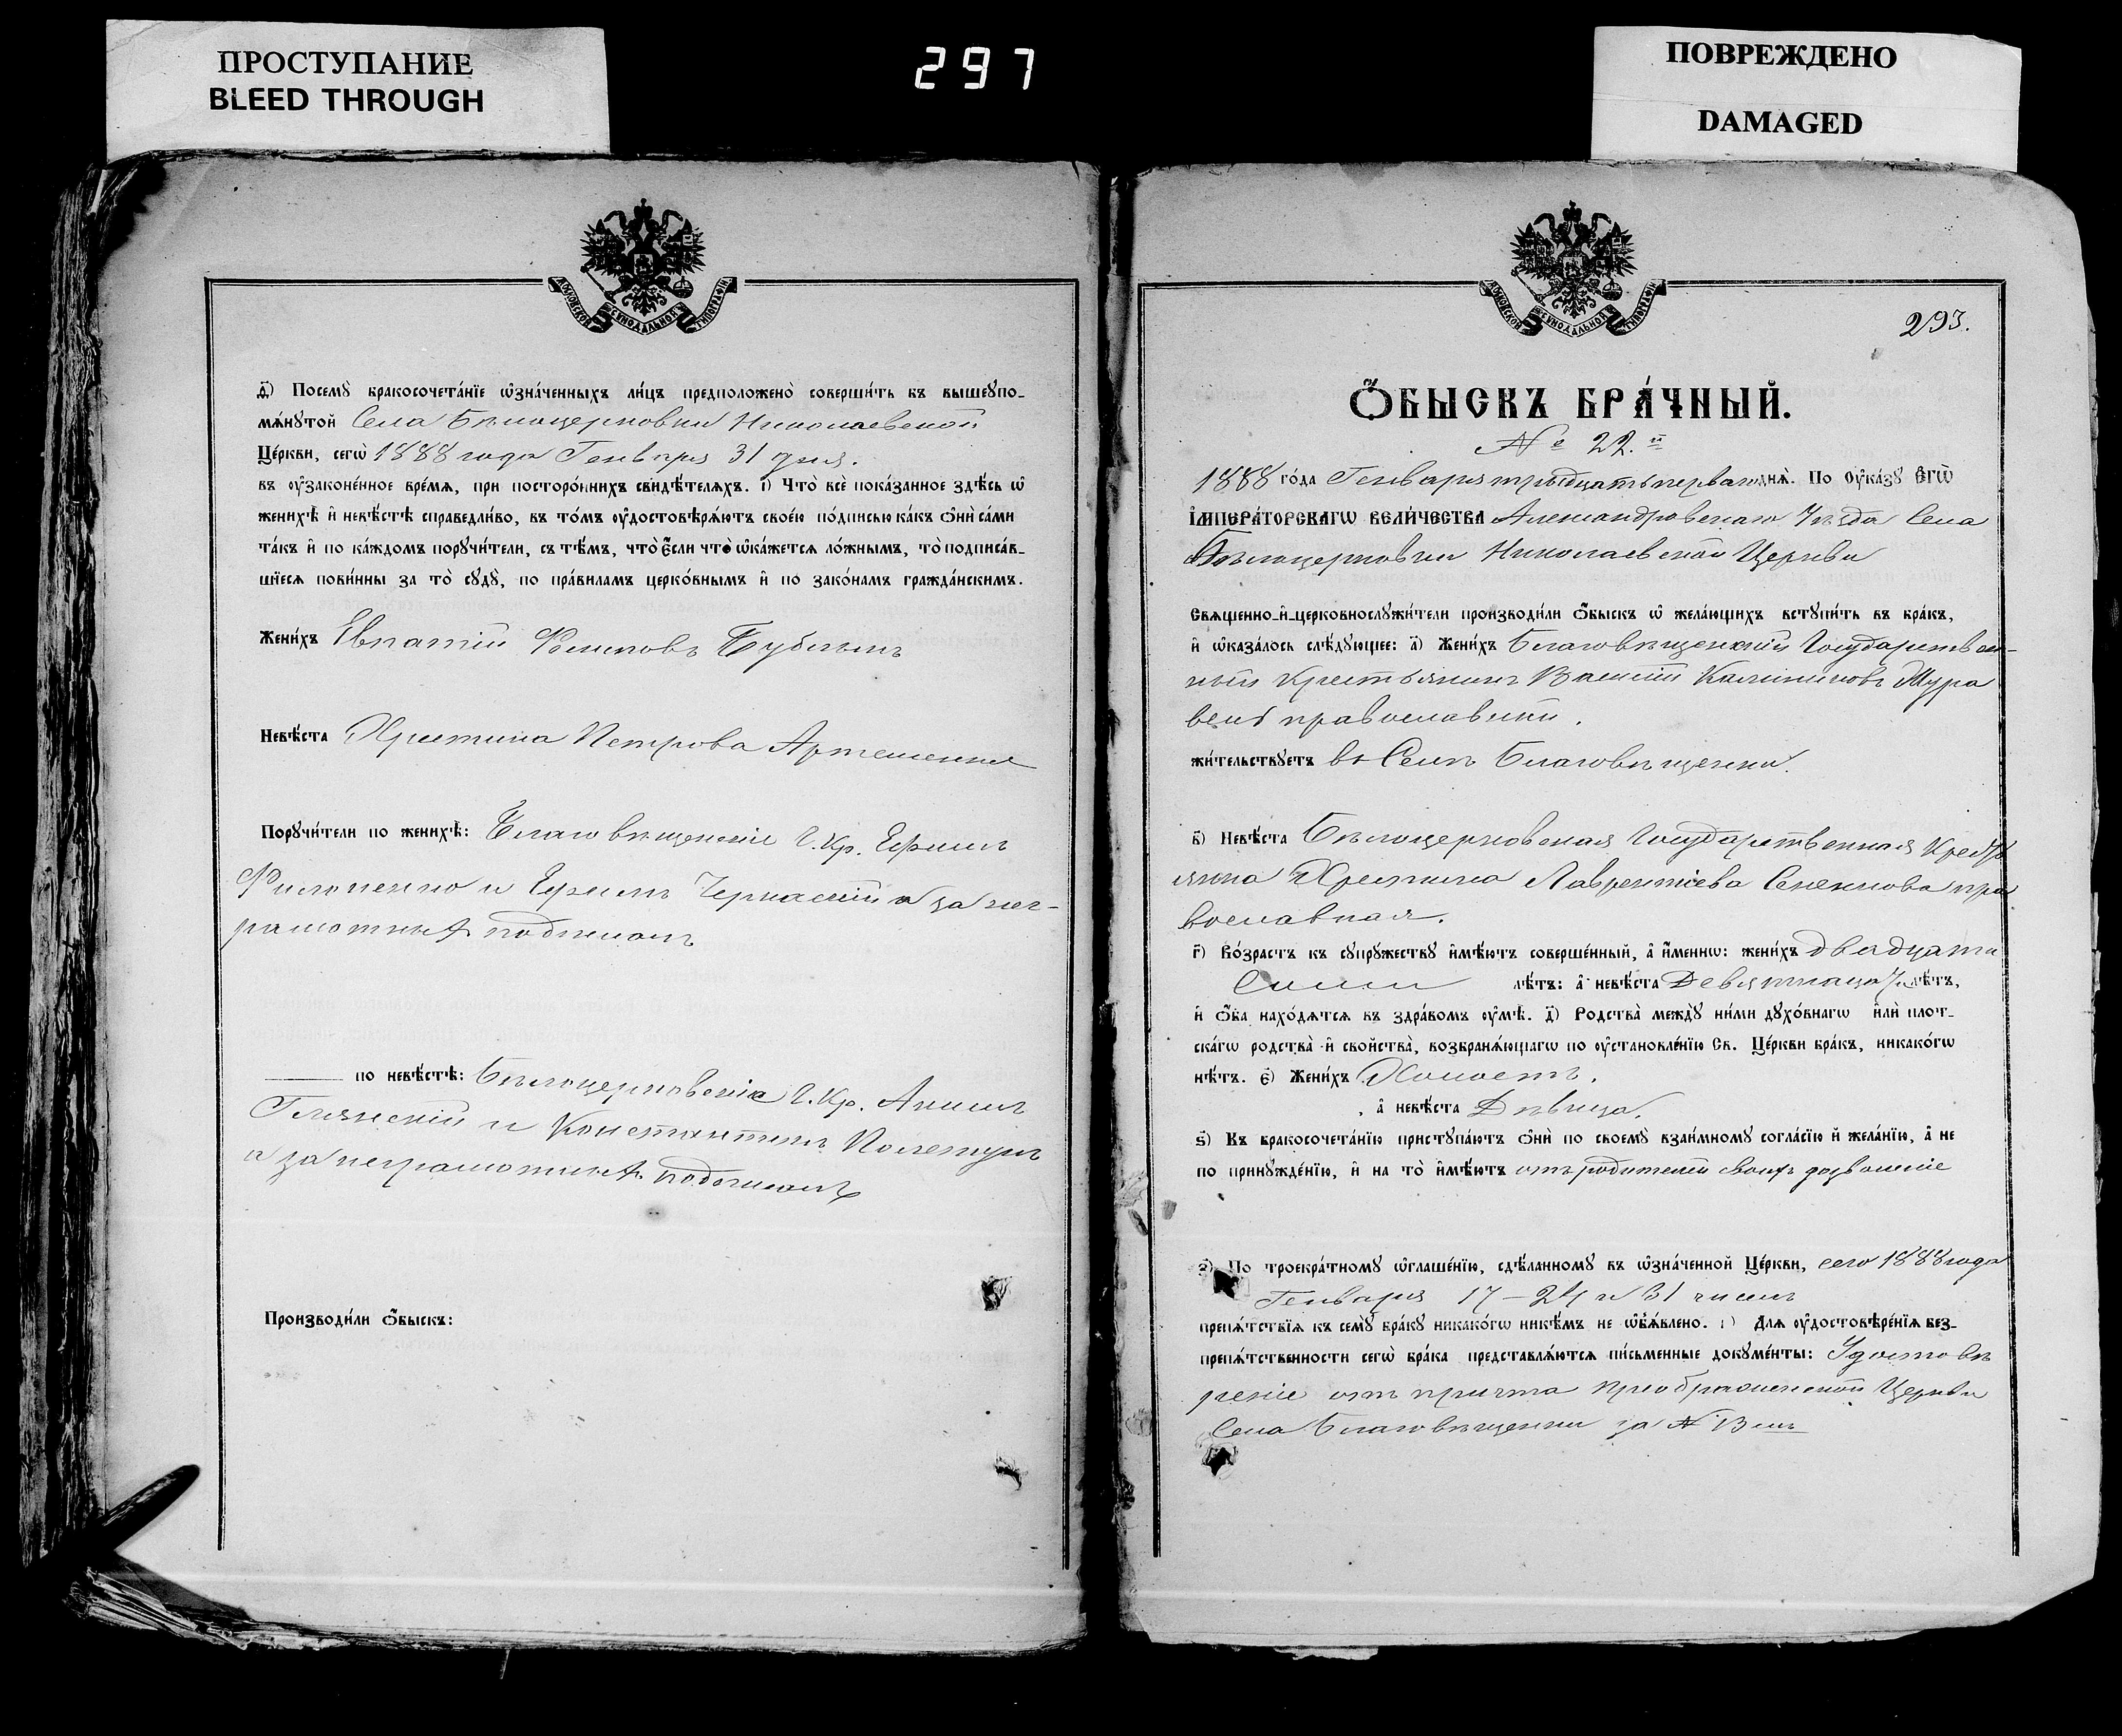 ПРОСТУПАНИЕ
BLEED THROUGH
297
ПОВРЕЖДЕНО
DAMAGED
МОСКОВСКОЙ СѴНОДАЛЬНОЙ ТИПОГРАФІИ
д҃) Посемꙋ̀ бракосочета́нїе ѡ҆зна́ченныхъ ли́цъ предположено̀ соверши́ть въ вышеꙋпо-
мѧ́нꙋтой Села Бѣлоцерковки Николаевской
Це́ркви, сегѡ̀ 1888 года Генваря 31 дня.
въ ѹ҆законе́нное вре́мѧ, при посторо́ннихъ свидѣ́телѧхъ. і) Что̀ всѐ пока́занное здѣ́сь ѡ҆
женихѣ̀ и҆ невѣ́стѣ справедли́во, въ то́мъ ѹ҆достовѣрѧ́ютъ свое́ю по́дписью ка́къ ѻ҆нѝ са́ми
та́къ и҆ по ка́ждомъ порꙋчи́тели, съ тѣ́мъ, что̀ є҆́сли что̀ ѡ҆ка́жетсѧ ло́жнымъ, то̀ подписа́в-
шїесѧ пови́нны за то̀ сꙋдꙋ̀, по пра́виламъ церко́внымъ и҆ по зако́намъ гражда́нскимъ.
Жени́хъ Евпатій Филиповъ Бублыкъ
Невѣ́ста Христина Петрова Артеменкова
Порꙋчи́тели по женихѣ̀: Благовѣщенскіе Г. Кр. Ефимъ
Филоненко и Ефимъ Черкаскій а за негра-
рамотныхъ подписалъ
по невѣ́стѣ: Бѣлоцерковскіе Г. Кр. Акимъ
и Константинъ
а за неграмотныхъ подписалъ
Производи́ли ѻ҆́быскъ:
МОСКОВСКОЙ СѴНОДАЛЬНОЙ ТИПОГРАФІИ
293.
Ѻ҆́БЫСКЪ БРА́ЧНЫЙ.
№ 22.й
1888 го́да Генваря тридцать перваго днѧ̀. По Оу҆ка́зꙋ Є҆гѡ̀
І҆МПЕРА́ТОРСКАГѠ ВЕЛИ́ЧЕСТВА Александровскаго Уѣзда Села
Бѣлоцерковки Николаевской Церкви
Свѧщенно-и҆-церковнослꙋжи́тели производи́ли ѻ҆́быскъ ѡ҆ жела́ющихъ встꙋпи́ть въ бра́къ,
и҆ ѡ҆каза́лось слѣ́дꙋющее: а҃) Жени́хъ Благовѣщенскій Государствен-
ный Крестьянинъ Василій Калиниковъ Мура
вель православный.
жи́тельствꙋетъ въ Селѣ Благовѣщенки.
в҃) Невѣ́ста Бѣлоцерковская Государственная Кресть
янка Христина Лаврентіева Сененкова пра
вославная.
г҃) Во́зрастъ къ сꙋпрꙋ́жествꙋ и҆мѣ́ютъ соверше́нный, а҆ и҆́меннѡ: жени́хъ двадцати
Семи лѣ́тъ: а҆ невѣ́ста Девятнадцати лѣ́тъ,
и҆ ѻ҆́ба нахо́дѧтсѧ въ здра́вомъ ѹ҆мѣ̀. д҃) Родства̀ междꙋ̀ ни́ми дꙋхо́внагѡ и҆лѝ плот-
ска́гѡ родства̀ и҆ свойства̀, возбранѧ́ющагѡ по ѹ҆становле́нїю Св. Це́ркви бра́къ, никако́гѡ
нѣ́тъ. є҃) Жени́хъ Холостъ.
, а҆ невѣ́ста Дѣвица.
ѕ҃) Къ бракосочета́нїю пристꙋпа́ютъ ѻ҆нѝ по своемꙋ̀ взаи́мномꙋ согла́сїю и҆ жела́нїю, а҆ не
по принꙋжде́нїю, и҆ на то̀ и҆мѣ́ютъ отъ родителей своихъ дозволеніе
з҃) По троекра́тномꙋ ѡ҆глаше́нїю, сдѣ́ланномꙋ въ ѡ҆зна́ченной Це́ркви, сего 1888 года
Генваря 17 – 24 и 31 чиселъ
препѧ́тствїѧ къ семꙋ̀ бра́кꙋ никако́гѡ никѣ́мъ не ѡ҆б̾ѧ́влено. и҃) Длѧ ѹ҆достовѣре́нїѧ без-
препѧ́тственности сегѡ̀ бра́ка представлѧ́ютсѧ пи́сьменные докꙋме́нты: Удостовѣ
реніе отъ причта Преображенской Церкви
Села Благовѣщенки за №